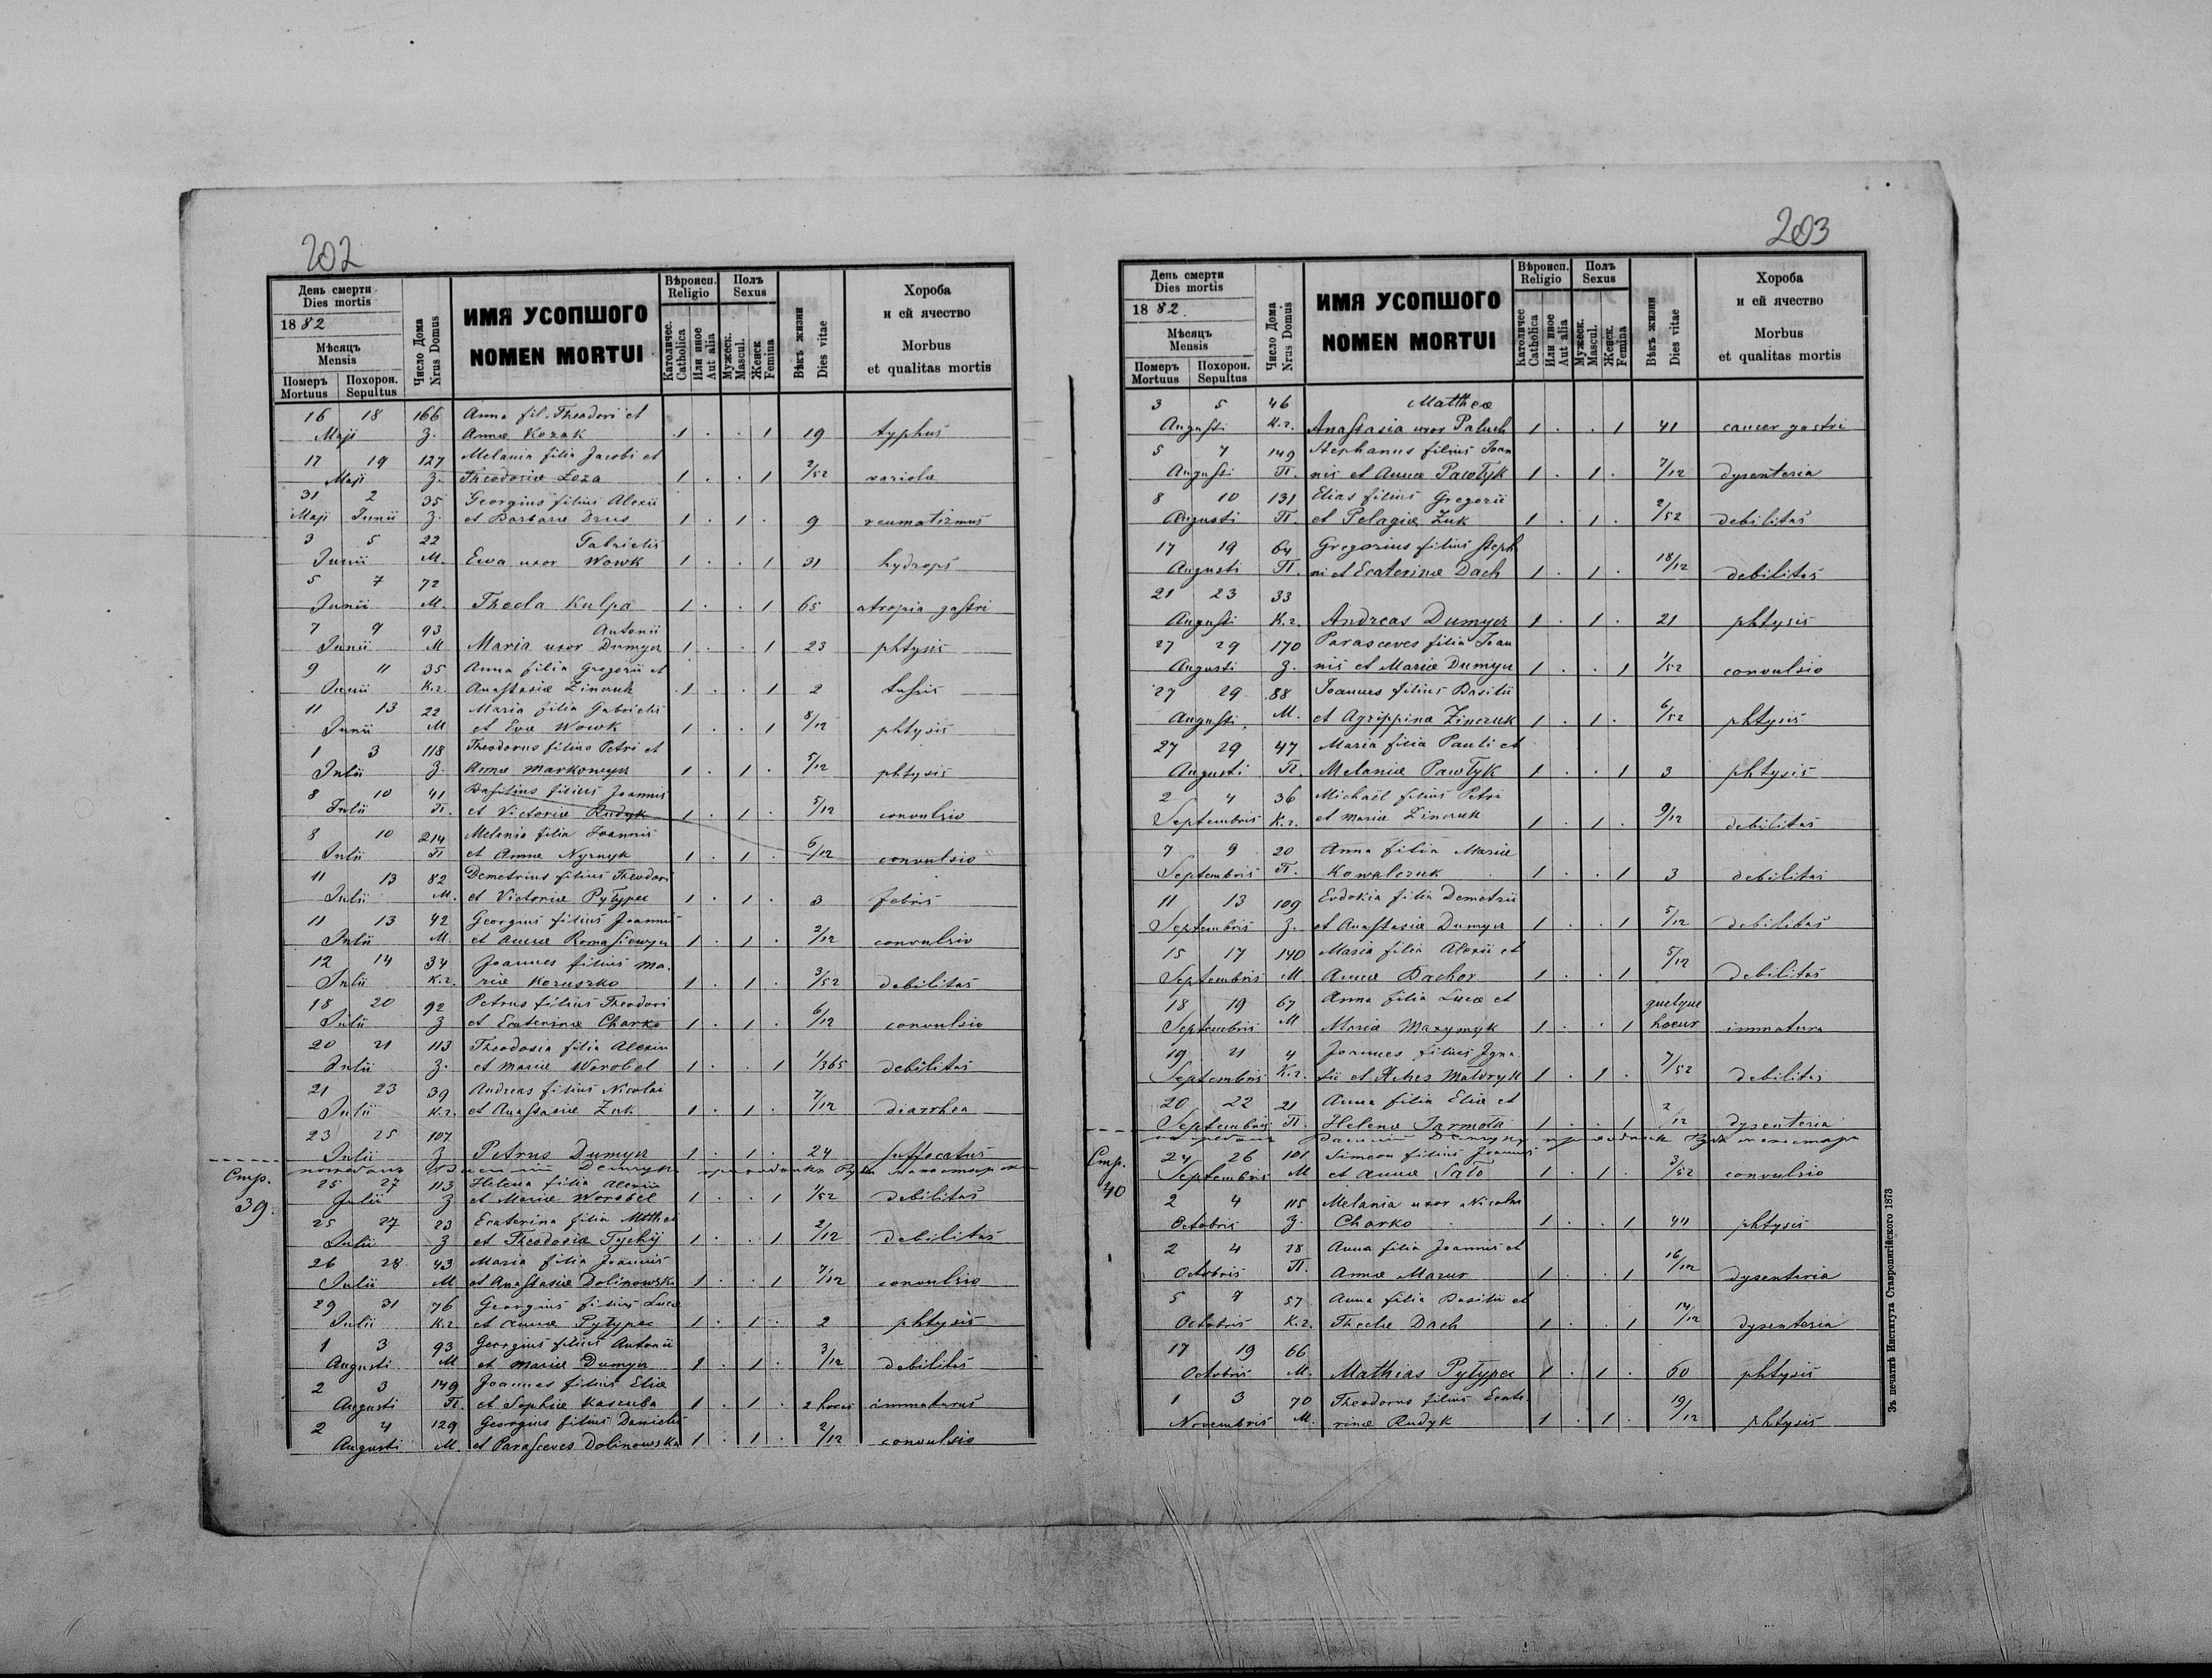 202
День смерти
Dies mortis
1882
Мѣсяцъ
Mensis
Померъ Похорон.
Mortuus Sepultus
Число Дома
Nrus Domus
ИМЯ УСОПШОГО
NOMEN MORTUI
Вѣроисп.
Religio
Католичес.
Catholica
Или иное
Aut alia
Полъ
Sexus
Мужеск.
Mascul.
Женск
Femina
Вѣкъ жизни
Dies vitae
Хороба
и ей ячество
Morbus
et qualitas mortis
16 18 166 Anna fil. Theodori et
Maji З. Annæ Kozak 1 . . 1 19 typhus
17 19 127 Melania filia Jacobi et
Maji З. Theodosiæ Leza 1 . . 1 2/52 variolæ
31 2 35 Georgius filius Alexii
Maji Junii З. et Barbaræ Drus 1 . 1 . 9 reumatizmus
3 5 22 Gabrielis
Junii М. Ewa uxor Wowk 1 . . 1 31 hydrops
5 7 72
Junii М. Thecla Kulpa 1 . . 1 65 atropia gastri
7 9 93 Antonii
Junii М Maria uxor Dumycz 1 . . 1 23 phtysis
9 11 35 Anna filia Gregorii et
Junii К.г. Anastasiæ Zinczuk 1 . . 1 2 tussis
11 13 22 Maria filia Gabrielis
Junii М et Evæ Wowk 1 . . 1 8/12 phtysis
1 3 118 Theodorus filius Petri et
Julii З. Annæ Markowycz 1 . 1 . 5/12 phtysis
8 10 41 Basilius filius Joannis
Julii П. et Victoriæ Rudyk 1 . 1 . 5/12 convulsio
8 10 214 Melania filia Joannis
Julii П et Annæ Nyznyk 1 . 1 . 6/12 convulsio
11 13 82 Demetrius filius Theodori
Julii М. et Victoriæ Pytypec 1 . 1 . 3 febris
11 13 42 Georgius filius Joannis
Julii М. et Annæ Romasiewycz 1 . 1 . 2/12 convulsio
12 14 34 Joannes filius Ma.
Julii К.г. riæ Kozuszko 1 . 1 . 3/52 debilitas
18 20 92 Petrus filius Theodori
Julii З et Ecaterinæ Charko 1 . 1 . 6/12 convulsio
20 21 113 Theodosia filia Alexii
Julii З. et Mariæ Worobel 1 . . 1 1/365 debilitas
21 23 39 Andreas filius Nicolai
Julii К.г. et Anastasiæ Zuk 1 . 1 . 7/12 diarrhea
23 25 107
Julii З Petrus Dumycz 1 . 1 . 24 suffocatus
Стр.
39.
25 27 113 Helena filia Alexii
Julii З et Mariæ Worobel 1 . . 1 1/52 debilitas
25 27 23 Ecaterina filia Matthei
Julii З et Theodosiæ Tychij 1 . . 1 2/12 debilitas
26 28 43 Maria filia Joannis
Julii М et Anastasiæ Dolinowska 1 . . 1 7/12 convulsio
29 31 76 Georgius filius Lucæ
Julii К.г et Annæ Pytypec 1 . 1 . 2 phtysis
1 3 93 Georgius filius Antonii
Augusti М et Mariæ Dumycz 1 . 1 . 3/12 debilitas
2 3 149 Joannes filius Eliæ
Augusti П. et Sophiæ Kaszuba 1 . 1 . 2 immaturus
2 4 129 Georgius filius Danielis
Augusti М. et Parasceves Dolinowska 1 . 1 . 2/12 convulsio
203
День смерти
Dies mortis
1882.
Мѣсяцъ
Mensis
Померъ Похорон.
Mortuus Sepultus
Число Дома
Nrus Domus
ИМЯ УСОПШОГО
NOMEN MORTUI
Вѣроисп.
Religio
Католичес
Catholica
Или иное
Aut alia
Полъ
Sexus
Мужеск.
Mascul.
Женск.
Femina
Вѣкъ жизни
Dies vitae
Хороба
и ей ячество
Morbus
et qualitas mortis
3 5 46 Mattheæ
Augusti К.г. Anastasia uxor Paluch 1 . . 1 41 cancer gastri
5 7 149 Stephanus filius Joan
Augusti П. nis et Annæ Pawłyk 1 . 1 . 7/12 dysenteria
8 10 131 Elias filius Gregorii
Augusti П. et Pelagiæ Zuk 1 . 1 . 2/52 debilitas
17 19 64 Gregorius filius Steph
Augusti П. ni et Ecaterinæ Dach 1 . 1 . 18/12 debilitas
21 23 33
Augusti К.г. Andreas Dumycz 1 . 1 . 21 phtysis
27 29 170 Parasceves filia Joan
Augusti З. nis et Mariæ Dumycz 1 . . 1 1/52 convulsio
27 29 88 Joannes filius Basilii
Augusti. М. et Agrippinæ Zinczuk 1 . 1 . 6/52 phtysis
27 29 47 Maria filia Pauli et
Augusti П. Melaniæ Pawłyk 1 . . 1 3 phtysis
2 4 36 Michaël filius Petri
Septembris К.г. et Mariæ Zinczuk 1 . 1 . 9/12 debilitas
7 9 20 Anna filia Mariæ
Septembris П. Kowalczuk 1 . . 1 3 debilitas
11 13 109 Evdokia filia Demetrii
Septembris З. et Anastasiæ Dumycz 1 . . 1 5/12 debilitas
15 17 140 Maria filia Alexii et
Septembris М Annæ Bachor 1 . . 1 5/12 debilitas
18 19 67 Anna filia Lucæ et quelque
Septembris М Mariæ Maxymyk 1 . . 1 hoeur immatura
19 21 4 Joannes filius Igna
Septembris К.г. tii et Małdryk 1 . 1 . 7/52 debilitas
20 22 21 Anna filia Eliæ et
Septembris П. Helenæ Jarmoła 1 . . 1 2/12 dysenteria
Стр.
40
24 26 101 Simeon filius Joannis
Septembris М et Annæ Sało 1 . 1 . 3/52 convulsio
2 4 115 Melania uxor Nicolai
Octobris З. Charko 1 . . 1 44 phtysis
2 4 28 Anna filia Joannis et
Octobris П. Annæ Mazur 1 . . 1 16/12 dysenteria
5 7 57 Anna filia Basilii et
Octobris К.г. Theclæ Dach 1 . . 1 14/12 dysenteria
17 19 66
Octobris М. Mathias Pytypec 1 . 1 . 60 phtysis
1 3 70 Theodorus filius Ecate.
Novembris М. rinæ Rudyk 1 . 1 . 19/12 phtysis
Зъ печатнѣ Института Ставропигійского 1873